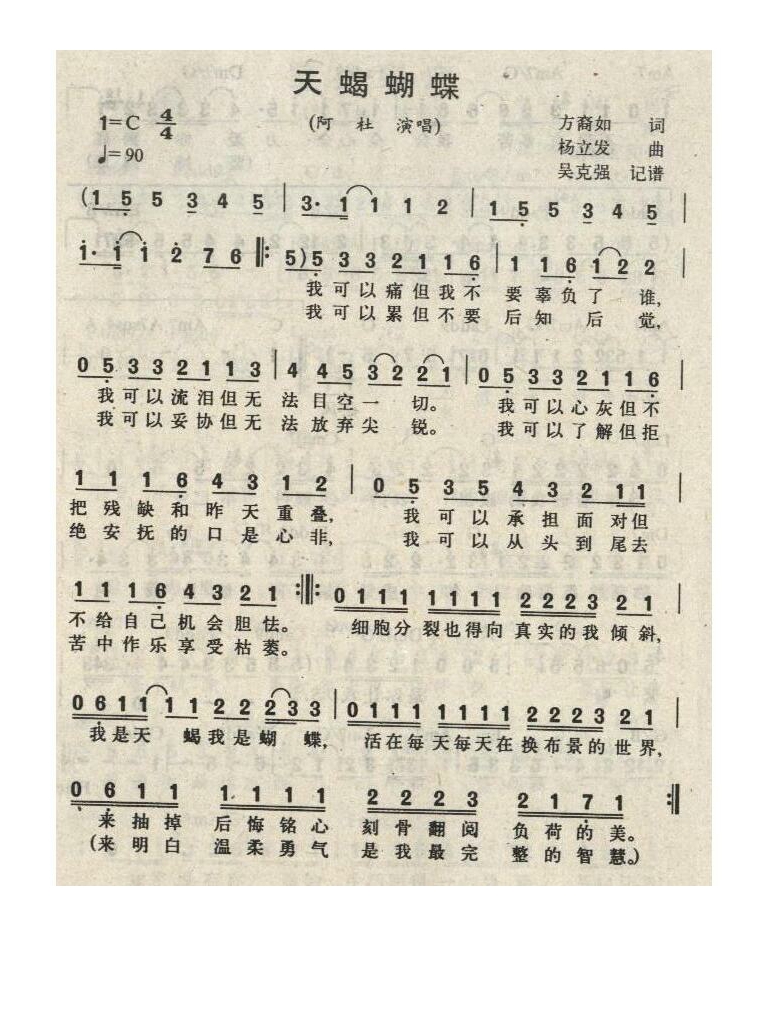 天蝎蝴蝶
1=C 4/4 (阿杜 演唱) 方裔如 词
♩=90 杨立发 曲
吴克强 记谱
(1 5 5 3 4 5 | 3· 1 1 1 2 | 1 5 5 3 4 5 |
1· 1 1 2 7 6 ‖: 5) 5 3 3 2 1 1 6 | 1 1 6 1 2 2 |
我可以痛但我不 要辜负了 谁,
我可以累但不要 后知 后 觉,
0 5 3 3 2 1 1 3 | 4 4 5 3 2 2 1 | 0 5 3 3 2 1 1 6 |
我可以流泪但无 法目空一 切。 我可以心灰但不
我可以妥协但无 法放弃尖 锐。 我可以了解但拒
1 1 1 6 4 3 1 2 | 0 5 3 5 4 3 2 1 1 |
把残缺和昨天重叠, 我可以承担面对但
绝安抚的口是心非, 我可以从头到尾去
1 1 1 6 4 3 2 1 :‖: 0 1 1 1 1 1 1 1 2 2 2 3 2 1 |
不给自己机会胆怯。 细胞分 裂也得向 真实的我 倾斜,
苦中作乐享受枯萎。
0 6 1 1 1 1 2 2 2 3 3 3 | 0 1 1 1 1 1 1 1 2 2 2 3 2 1 |
我是天 蝎我是蝴 蝶, 活在每天每天在 换布景的世界,
0 6 1 1 1 1 1 1 2 2 2 3 2 1 7 1 :‖
来抽掉 后悔铭心 刻骨翻阅 负荷的美。
(来明白 温柔勇气 是我最完 整的智慧。)